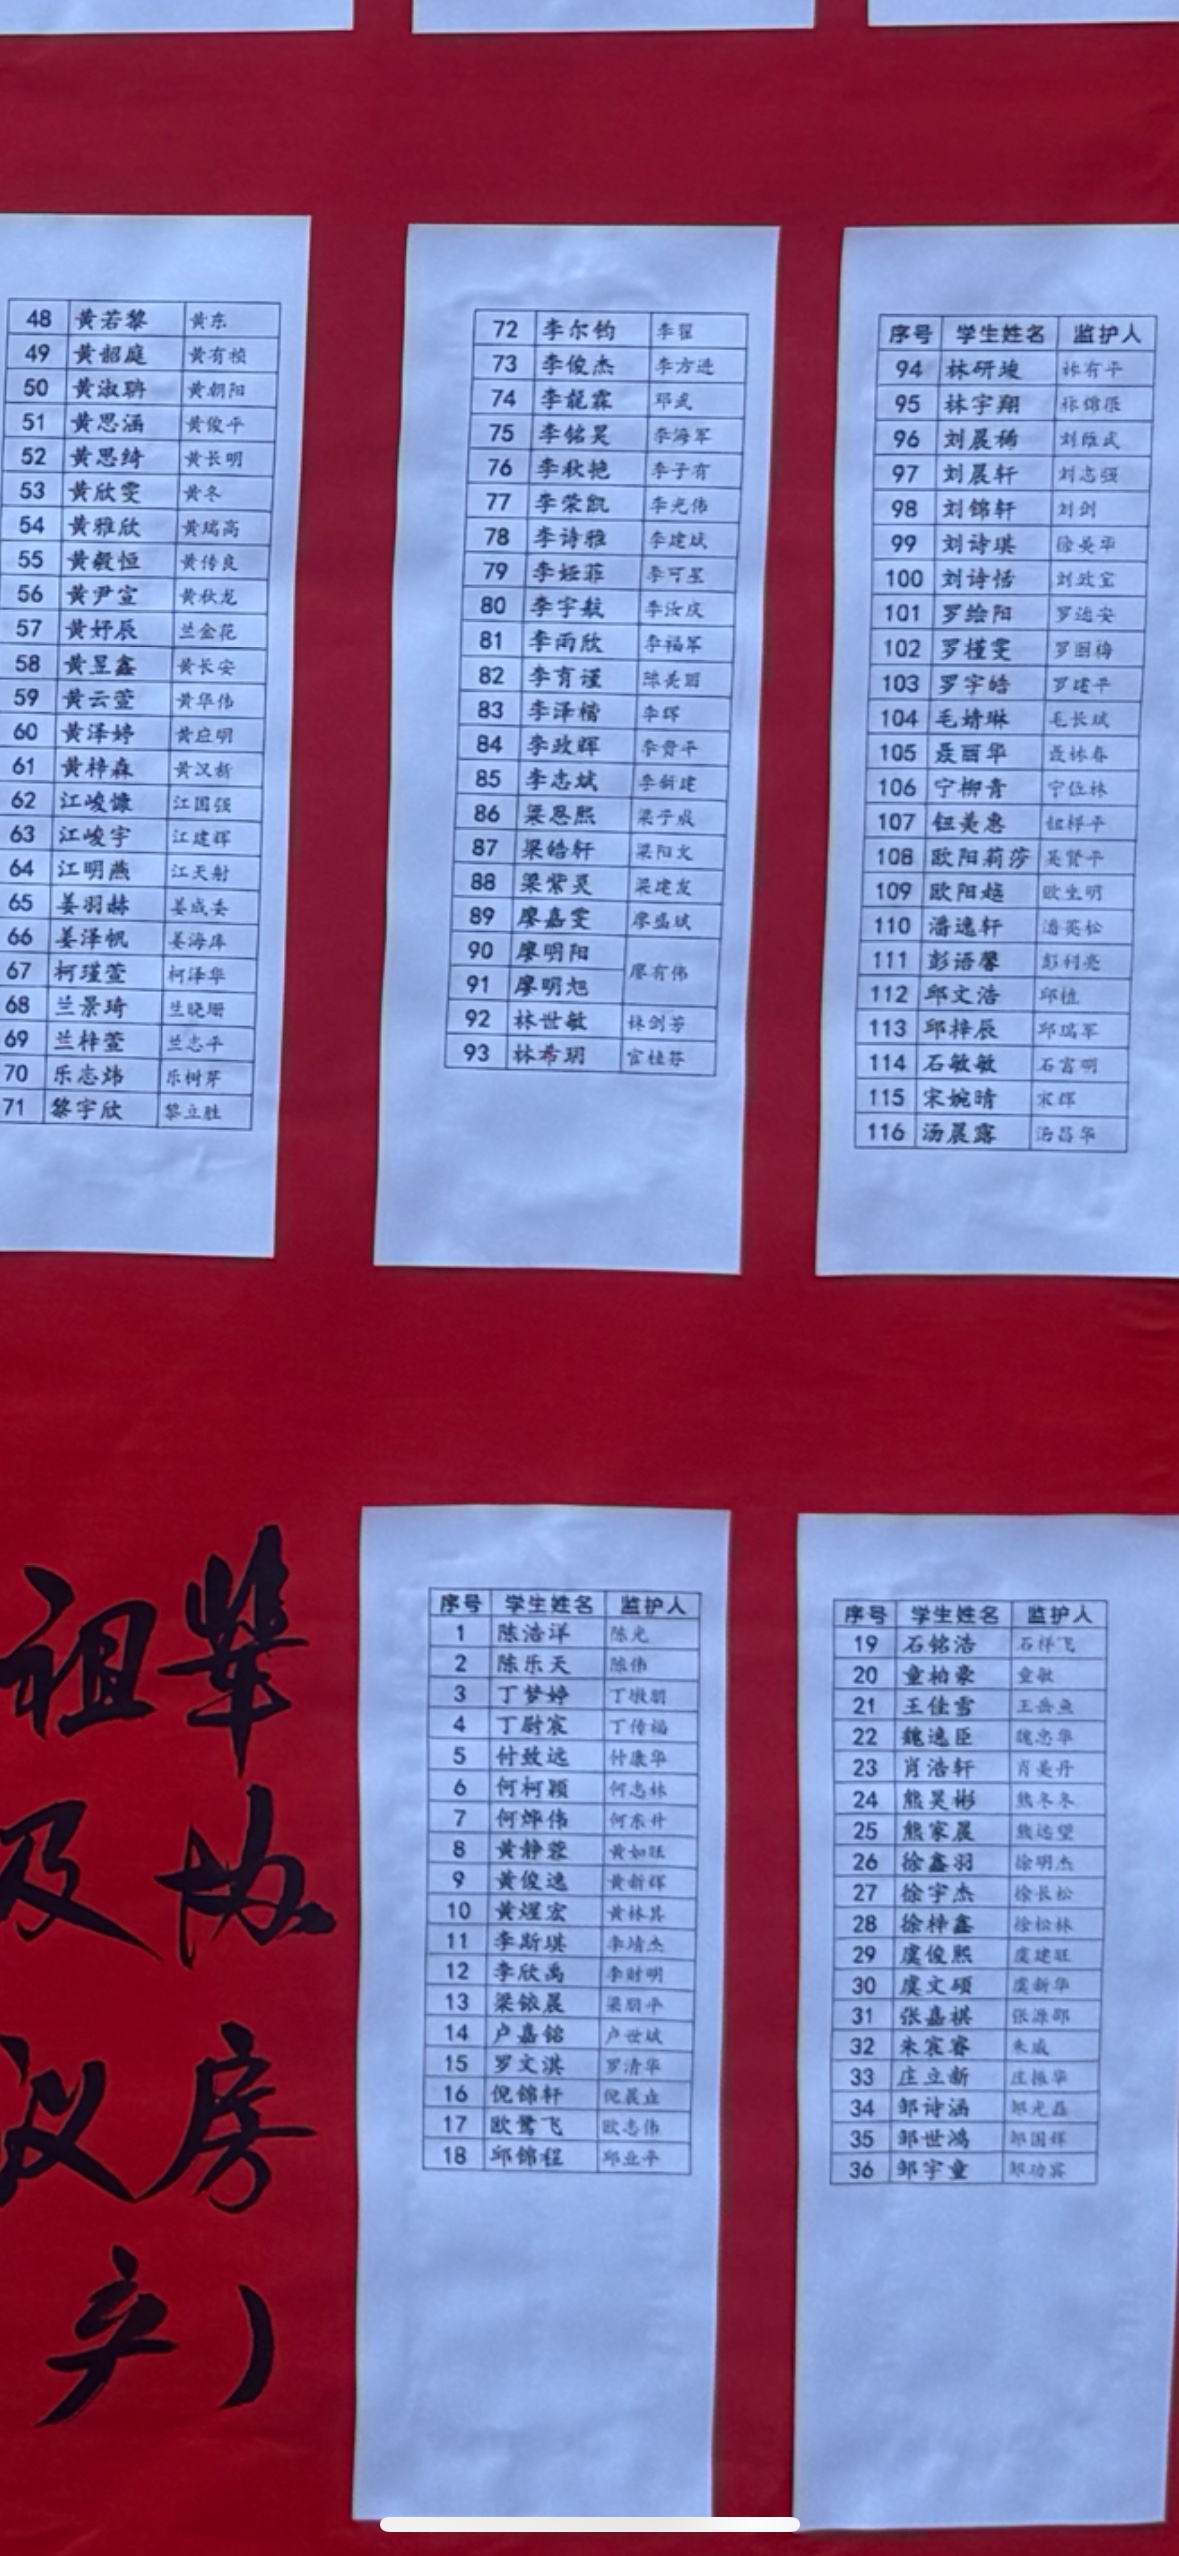 48 黄若黎 黄东
49 黄韶庭 黄有祯
50 黄淑聃 黄朝阳
51 黄思涵 黄俊平
52 黄思绮 黄长明
53 黄欣雯 黄冬
54 黄雅欣 黄瑞高
55 黄毅恒 黄传良
56 黄尹宣 黄秋龙
57 黄妤辰 兰金花
58 黄昱鑫 黄长安
59 黄云萱 黄华伟
60 黄泽婷 黄应明
61 黄梓森 黄汉新
62 江峻慷 江国强
63 江峻宇 江建辉
64 江明燕 江天射
65 姜羽赫 姜成委
66 姜泽帆 姜海库
67 柯瑾萱 柯泽华
68 兰景琦 兰晓珊
69 兰梓萱 兰志平
70 乐志炜 乐树芽
71 黎宇欣 黎立胜
72 李尔钧 李翟
73 李俊杰 李方进
74 李能霖 邓武
75 李铭昊 李海军
76 李秋艳 李子有
77 李荣凯 李光伟
78 李诗雅 李建斌
79 李娅菲 李可星
80 李宇航 李汝庆
81 李雨欣 李福军
82 李育谨 陈美丽
83 李泽楷 李辉
84 李政晖 李贵平
85 李志斌 李新建
86 梁恩熙 梁子成
87 梁皓轩 梁阳文
88 梁紫灵 梁建发
89 廖嘉雯 廖盛斌
90 廖明阳 廖有伟
91 廖明旭
92 林世敏 林剑芳
93 林希玥 官桂芬
序号 学生姓名 监护人
94 林研浚 林有平
95 林宇翔
96 刘晨稀
97 刘晨轩 刘志强
98 刘锦轩 刘剑
99 刘诗琪 徐美华
100 刘诗恬 刘政宝
101 罗绘阳 罗运安
102 罗槿雯 罗丽梅
103 罗宇皓 罗建平
104 毛婧琳 毛长斌
105 聂丽华 聂林春
106 宁柳青 宁位林
107 钮美惠 钮样平
108 欧阳莉莎 吴贤平
109 欧阳越 欧生明
110 潘逸轩 潘英松
111 彭语馨 彭利亮
112 邱文浩 邱植
113 邱梓辰 邱瑞军
114 石敏敏 石富明
115 宋婉晴 宋辉
116 汤晨露 汤昌华
祖辈
及协
议房
产）
序号 学生姓名 监护人
1 陈浩洋 陈光
2 陈乐天 陈伟
3 丁梦婷 丁墩朋
4 丁尉宸 丁传福
5 付致远 付康华
6 何柯颖 何志林
7 何烨伟 何东升
8 黄静蓉 黄如旺
9 黄俊逸 黄新辉
10 黄煜宏 黄林其
11 李斯琪 李靖杰
12 李欣禹 李财明
13 梁铱晨 梁朋平
14 卢嘉铭 卢世斌
15 罗文淇 罗清华
16 倪锦轩
17 欧鹭飞 欧志伟
18 邱锦程 邱业平
序号 学生姓名 监护人
19 石铭浩 石祥飞
20 童柏豪 童敏
21 王佳雪 王岳鱼
22 魏逸臣 魏忠华
23 肖浩轩 肖美丹
24 熊昊彬 熊冬冬
25 熊家晨 熊远望
26 徐鑫羽 徐明杰
27 徐宇杰 徐长松
28 徐梓鑫 徐松林
29 虞俊熙 虞建旺
30 虞文硕 虞新华
31 张嘉祺 张源邵
32 朱宸睿 朱威
33 庄立新 庄振华
34 邹诗涵 邹光磊
35 邹世鸿 邹国辉
36 邹宇童 邹功宾